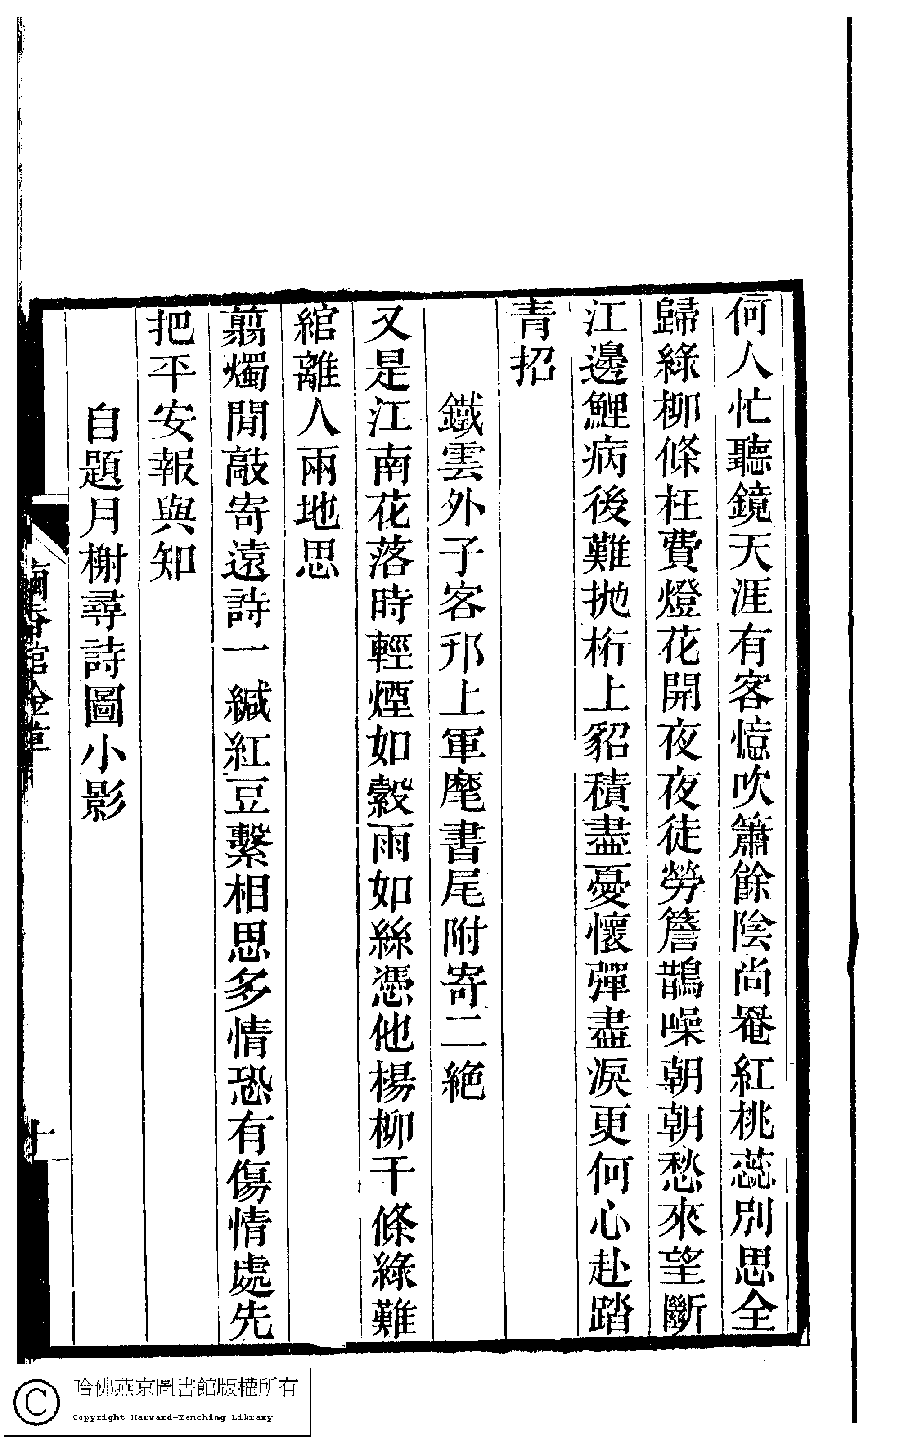 何人忙聽鏡天涯有客憶吹簫餘陰尚罨紅桃蕊別思全
歸綠柳條枉費燈花開夜夜徒勞簷鵲噪朝朝愁來望斷
江邊鯉病後難拋桁上貂積盡憂懷彈盡淚更何心赴踏
青招
鐵雲外子客邗上軍麾書尾附寄二絕
又是江南花落時輕煙如縠雨如絲憑他楊柳千條綠難
綰離人兩地思
翦燭閒敲寄遠詩一緘紅豆繫相思多情恐有傷情處先
把平安報與知
自題月榭尋詩圖小影
十
哈佛燕京圖書館版權所有
Copyright Harvard-Yenching Library